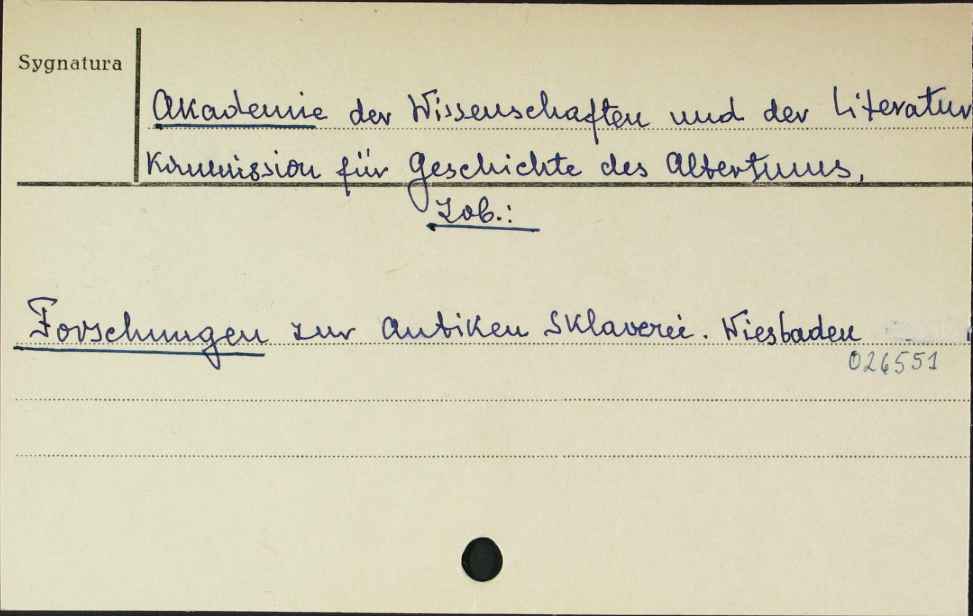 Sygnatura
Akademie der Wissenschaften und der Literatur
Kommission für Geschichte des Altertums,
Zob.:
Forschungen zur antiken Sklaverei. Wiesbaden
026551